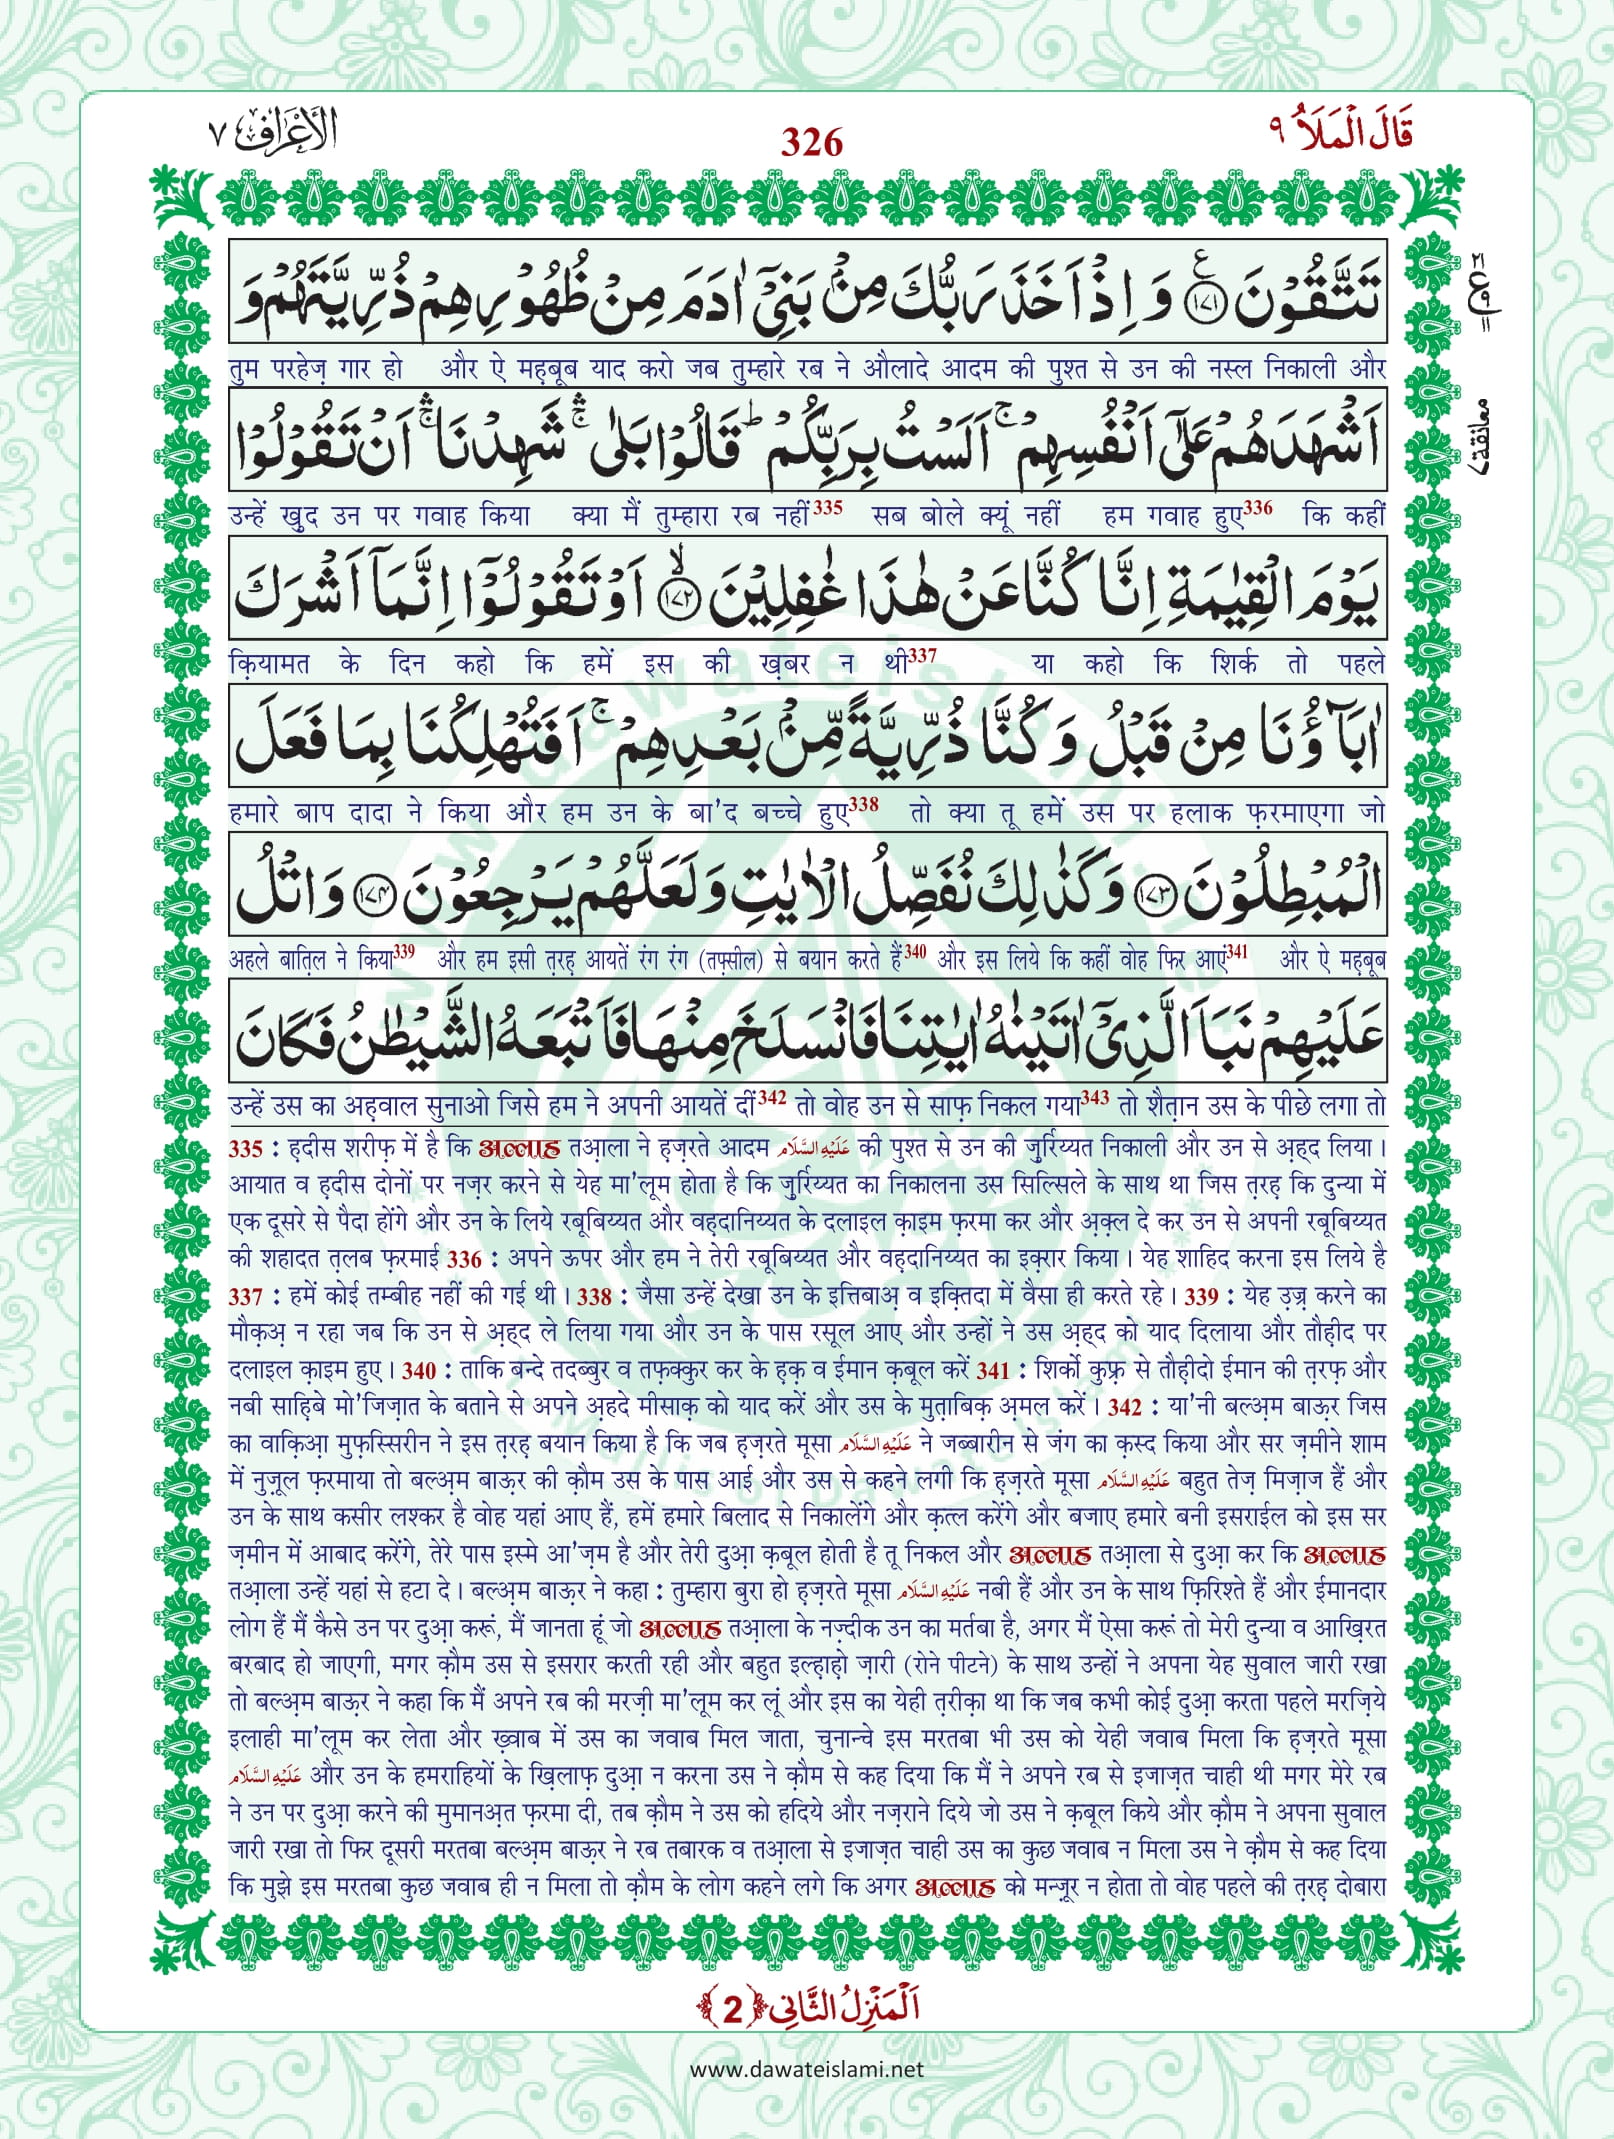 قَالَ الْمَلَاُ ٩
326
الْاَعْرَاف ٧
تَتَّقُوْنَ ۧ﴿١٧١﴾ وَ اِذْ اَخَذَ رَبُّكَ مِنْۢ بَنِیْۤ اٰدَمَ مِنْ ظُهُوْرِهِمْ ذُرِّیَّتَهُمْ وَ
तुम परहेज़ गार हो और ऐ मह़बूब याद करो जब तुम्हारे रब ने औलादे आदम की पुश्त से उन की नस्ल निकाली और
اَشْهَدَهُمْ عَلٰۤى اَنْفُسِهِمْ ۚ اَلَسْتُ بِرَبِّكُمْ ؕ قَالُوْا بَلٰى ۛۚ شَهِدْنَا ۛۚ اَنْ تَقُوْلُوْا
معانقة ٧
उन्हें खुद उन पर गवाह किया क्या मैं तुम्हारा रब नहीं335 सब बोले क्यूं नहीं हम गवाह हुए336 कि कहीं
یَوْمَ الْقِیٰمَةِ اِنَّا كُنَّا عَنْ هٰذَا غٰفِلِیْنَ ۙ﴿١٧٢﴾ اَوْ تَقُوْلُوْۤا اِنَّمَاۤ اَشْرَكَ
क़ियामत के दिन कहो कि हमें इस की ख़बर न थी337 या कहो कि शिर्क तो पहले
اٰبَآؤُنَا مِنْ قَبْلُ وَ كُنَّا ذُرِّیَّةً مِّنْۢ بَعْدِهِمْ ۚ اَفَتُهْلِكُنَا بِمَا فَعَلَ
हमारे बाप दादा ने किया और हम उन के बा'द बच्चे हुए338 तो क्या तू हमें उस पर हलाक फ़रमाएगा जो
الْمُبْطِلُوْنَ ﴿١٧٣﴾ وَ كَذٰلِكَ نُفَصِّلُ الْاٰیٰتِ وَ لَعَلَّهُمْ یَرْجِعُوْنَ ﴿١٧٤﴾ وَ اتْلُ
अहले बात़िल ने किया339 और हम इसी त़रह़ आयतें रंग रंग (तफ़्सील) से बयान करते हैं340 और इस लिये कि कहीं वोह फिर आएं341 और ऐ मह़बूब
عَلَیْهِمْ نَبَاَ الَّذِیْۤ اٰتَیْنٰهُ اٰیٰتِنَا فَانْسَلَخَ مِنْهَا فَاَتْبَعَهُ الشَّیْطٰنُ فَكَانَ
उन्हें उस का अह़वाल सुनाओ जिसे हम ने अपनी आयतें दीं342 तो वोह उन से साफ़ निकल गया343 तो शैत़ान उस के पीछे लगा तो
335 : ह़दीस शरीफ़ में है कि अल्लाह तआ़ला ने ह़ज़रते आदम عَلَيْهِ السَّلَام की पुश्त से उन की ज़ुर्रिय्यत निकाली और उन से अ़ह्द लिया ।
आयात व ह़दीस दोनों पर नज़र करने से येह मा'लूम होता है कि ज़ुर्रिय्यत का निकालना उस सिल्सिले के साथ था जिस त़रह़ कि दुन्या में
एक दूसरे से पैदा होंगे और उन के लिये रबूबिय्यत और वह़दानिय्यत के दलाइल क़ाइम फ़रमा कर और अ़क़्ल दे कर उन से अपनी रबूबिय्यत
की शहादत त़लब फ़रमाई 336 : अपने ऊपर और हम ने तेरी रबूबिय्यत और वह़दानिय्यत का इक़्रार किया । येह शाहिद करना इस लिये है
337 : हमें कोई तम्बीह नहीं की गई थी । 338 : जैसा उन्हें देखा उन के इत्तिबाअ़ व इक़्तिदा में वैसा ही करते रहे । 339 : येह उ़ज़्र करने का
मौक़अ़ न रहा जब कि उन से अ़ह्द ले लिया गया और उन के पास रसूल आए और उन्हों ने उस अ़ह्द को याद दिलाया और तौह़ीद पर
दलाइल क़ाइम हुए । 340 : ताकि बन्दे तदब्बुर व तफ़क्कुर कर के ह़क़ व ईमान क़बूल करें 341 : शिर्को कुफ़्र से तौह़ीदो ईमान की त़रफ़ और
नबी साह़िबे मो'जिज़ात के बताने से अपने अ़हदे मीसाक़ को याद करें और उस के मुत़ाबिक़ अ़मल करें । 342 : या'नी बल्अ़म बाऊ़र जिस
का वाक़िआ़ मुफ़स्सिरीन ने इस त़रह़ बयान किया है कि जब ह़ज़रते मूसा عَلَيْهِ السَّلَام ने जब्बारीन से जंग का क़स्द किया और सर ज़मीने शाम
में नुज़ूल फ़रमाया तो बल्अ़म बाऊ़र की क़ौम उस के पास आई और उस से कहने लगी कि ह़ज़रते मूसा عَلَيْهِ السَّلَام बहुत तेज़ मिज़ाज हैं और
उन के साथ कसीर लश्कर है वोह यहां आए हैं, हमें हमारे बिलाद से निकालेंगे और क़त्ल करेंगे और बजाए हमारे बनी इसराईल को इस सर
ज़मीन में आबाद करेंगे, तेरे पास इस्मे आ'ज़म है और तेरी दुआ़ क़बूल होती है तू निकल और अल्लाह तआ़ला से दुआ़ कर कि अल्लाह
तआ़ला उन्हें यहां से हटा दे । बल्अ़म बाऊ़र ने कहा : तुम्हारा बुरा हो ह़ज़रते मूसा عَلَيْهِ السَّلَام नबी हैं और उन के साथ फ़िरिश्ते हैं और ईमानदार
लोग हैं मैं कैसे उन पर दुआ़ करूं, मैं जानता हूं जो अल्लाह तआ़ला के नज़्दीक उन का मर्तबा है, अगर मैं ऐसा करूं तो मेरी दुन्या व आख़िरत
बरबाद हो जाएगी, मगर क़ौम उस से इसरार करती रही और बहुत इल्ह़ाह़ो ज़ारी (रोने पीटने) के साथ उन्हों ने अपना येह सुवाल जारी रखा
तो बल्अ़म बाऊ़र ने कहा कि मैं अपने रब की मरज़ी मा'लूम कर लूं और इस का येही त़रीक़ा था कि जब कभी कोई दुआ़ करता पहले मरज़िये
इलाही मा'लूम कर लेता और ख़्वाब में उस का जवाब मिल जाता, चुनान्चे इस मरतबा भी उस को येही जवाब मिला कि ह़ज़रते मूसा
عَلَيْهِ السَّلَام और उन के हमराहियों के ख़िलाफ़ दुआ़ न करना उस ने क़ौम से कह दिया कि मैं ने अपने रब से इजाज़त चाही थी मगर मेरे रब
ने उन पर दुआ़ करने की मुमानअ़त फ़रमा दी, तब क़ौम ने उस को हदिये और नज़राने दिये जो उस ने क़बूल किये और क़ौम ने अपना सुवाल
जारी रखा तो फिर दूसरी मरतबा बल्अ़म बाऊ़र ने रब तबारक व तआ़ला से इजाज़त चाही उस का कुछ जवाब न मिला उस ने क़ौम से कह दिया
कि मुझे इस मरतबा कुछ जवाब ही न मिला तो क़ौम के लोग कहने लगे कि अगर अल्लाह को मन्ज़ूर न होता तो वोह पहले की त़रह़ दोबारा
اَلْمَنْزِلُ الثَّانِی ﴿2﴾
www.dawateislami.net